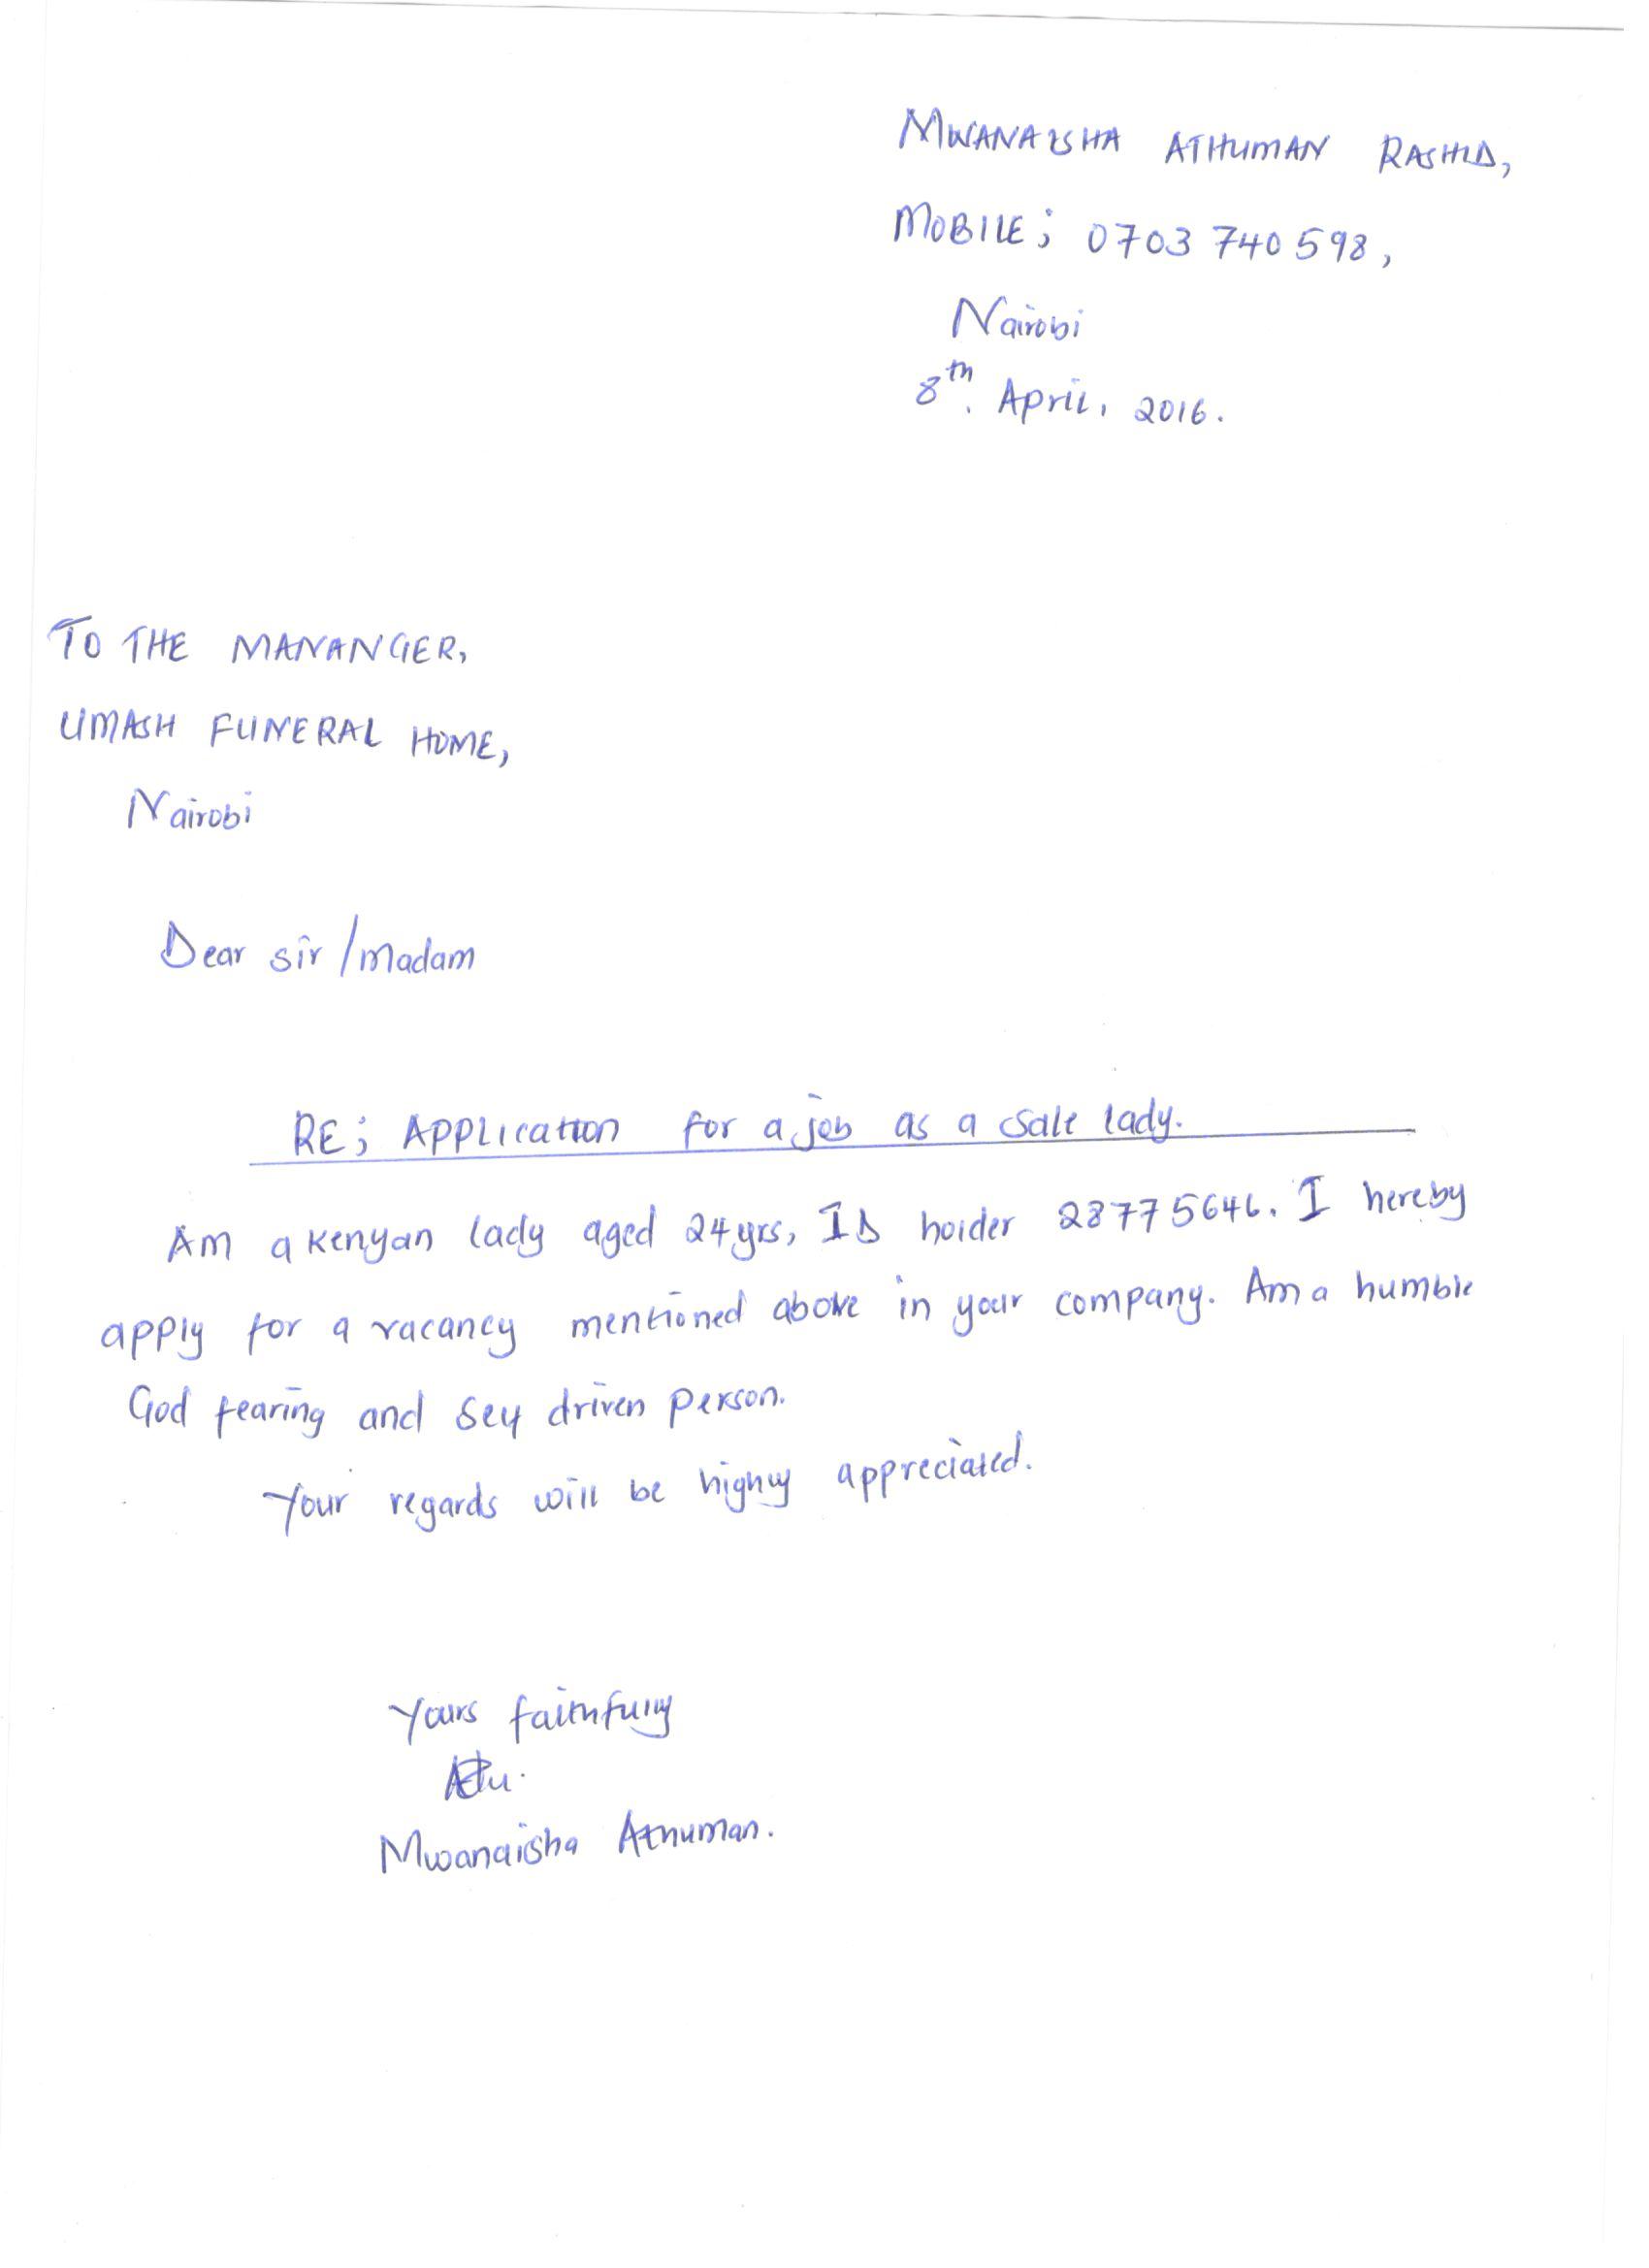 MWANAISHA ATHUMAN RASHID,
MOBILE; 0703 740 598,
Nairobi
8th. April, 2016.
TO THE MANANGER,
UMASH FUNERAL HOME,
Nairobi
Dear sir / madam
RE; Application for a job as a sale lady.
Am a kenyan lady aged 24yrs, ID holder 28775646. I hereby
apply for a vacancy mentioned above in your company. Am a humble
God fearing and self driven person.
Your regards will be highly appreciated.
Yours faithfully
Mwanaisha Athuman.